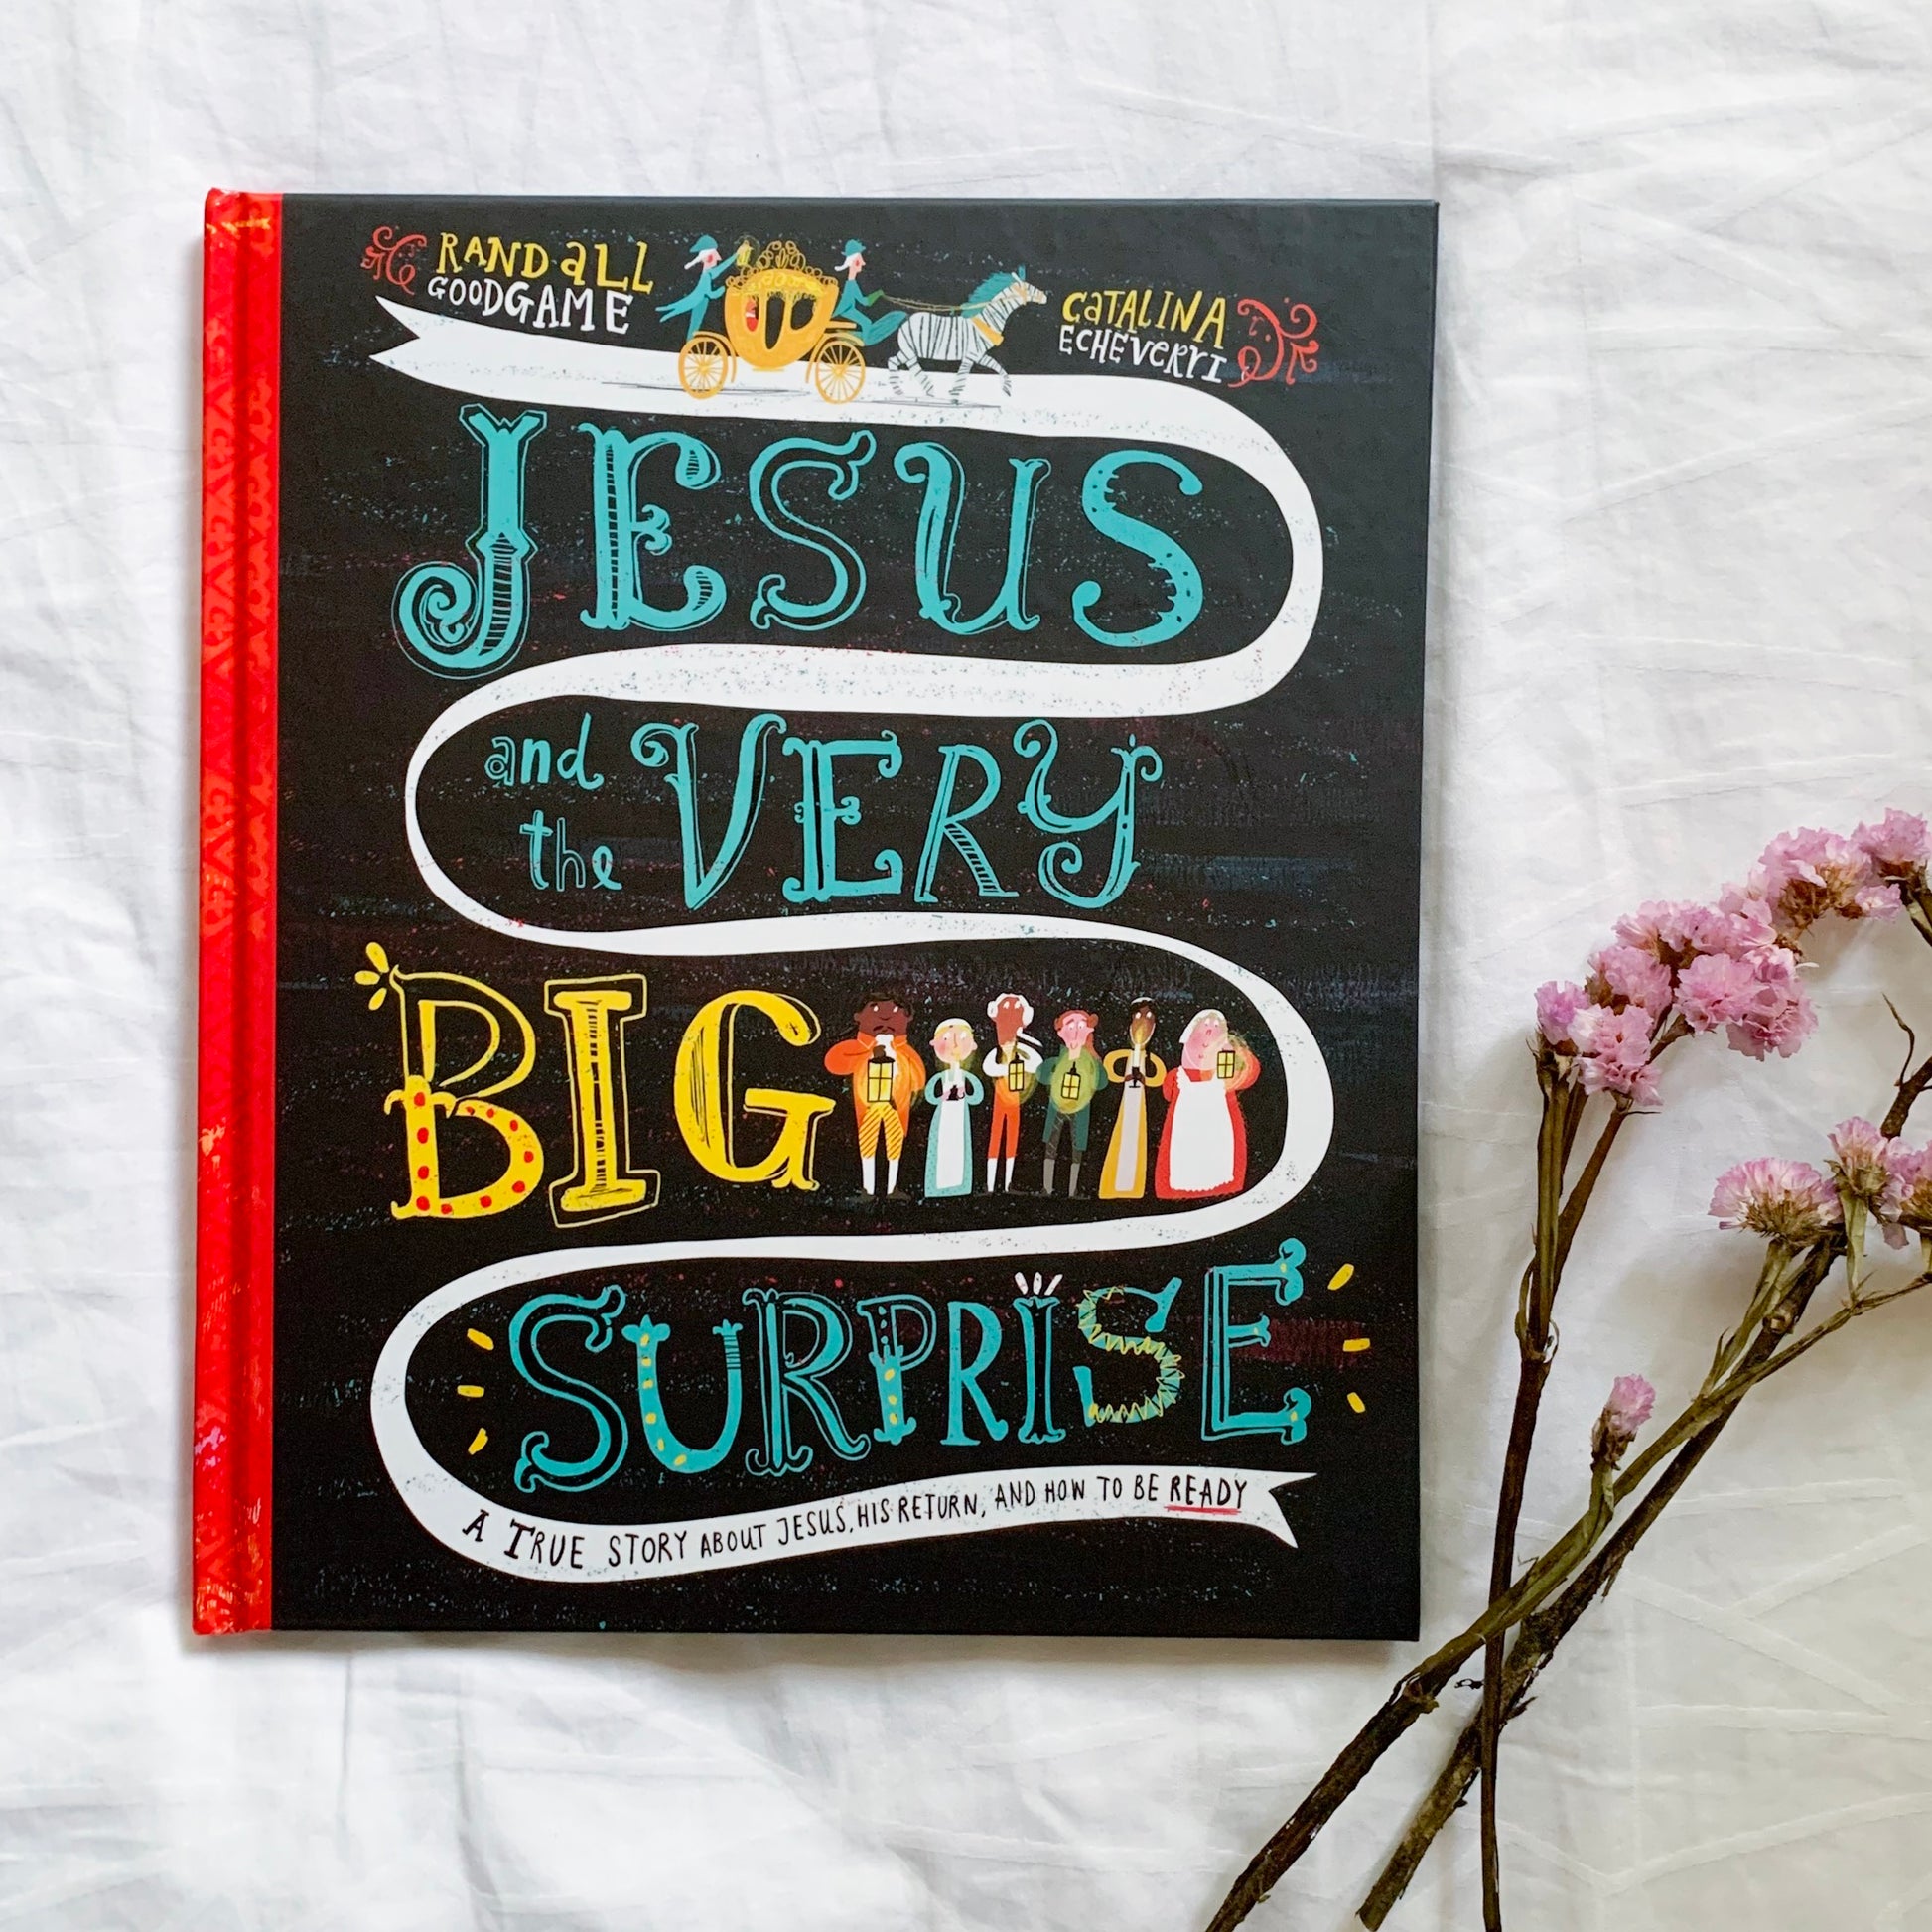 RANDALL
GOODGAME
CATALINA
ECHEVERRI
JESUS
and the VERY
BIG
SURPRISE
A TRUE STORY ABOUT JESUS, HIS RETURN, AND HOW TO BE READY